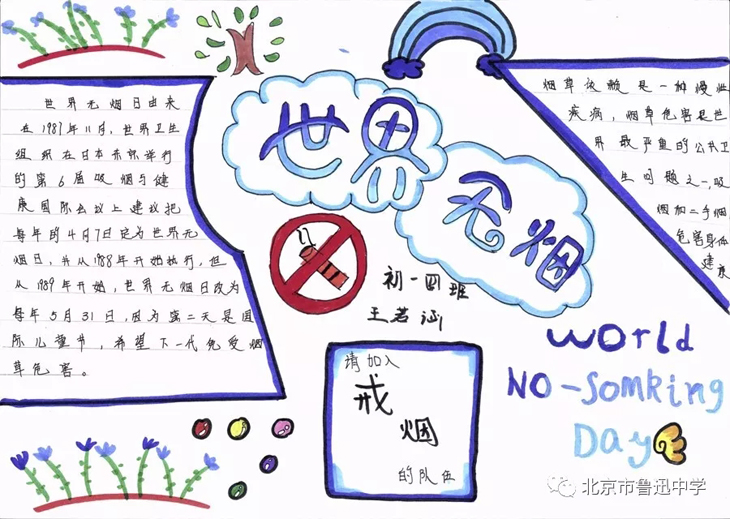 世界无烟日由来
在1987年11月,世界卫生
组织在日本东京举行
的第6届吸烟与健
康国际会议上建议把
每年的4月7日定为世界无
烟日,并从1988年开始执行,但
从1989年开始,世界无烟日改为
每年5月31日,因为第二天是国
际儿童节,希望下一代免受烟
草危害。
世界
无烟
初一四班
王若涵
请加入
戒
烟
的队伍
烟草依赖是一种慢性
疾病,烟草危害是世
界最严重的公共卫
生问题之一,吸
烟和二手烟
危害身体
健康
World
NO-Somking
Day
北京市鲁迅中学